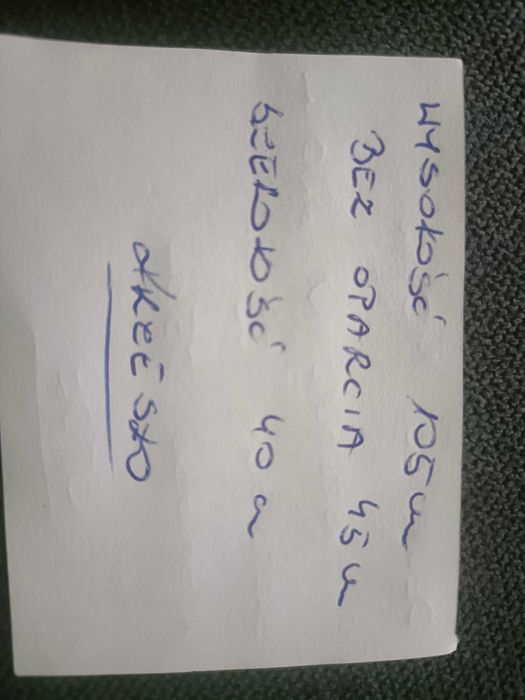 WYSOKOŚĆ 105 cm
BEZ OPARCIA 45 cm
SZEROKOŚĆ 40 cm
KRZESŁO